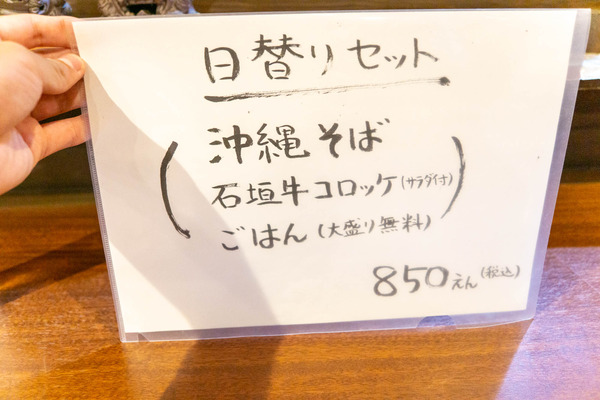 日替りセット
沖縄そば
石垣牛コロッケ(サラダ付)
ごはん(大盛り無料)
850えん(税込)